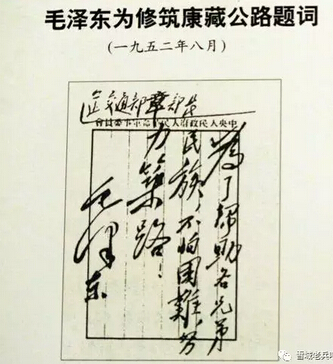 毛泽东为修筑康藏公路题词
(一九五二年八月)
交通部章部长
中央人民政府人民革命軍事委員會
為了幫助各兄弟
民族，不怕困難，努
力築路！
毛澤东
城老兵